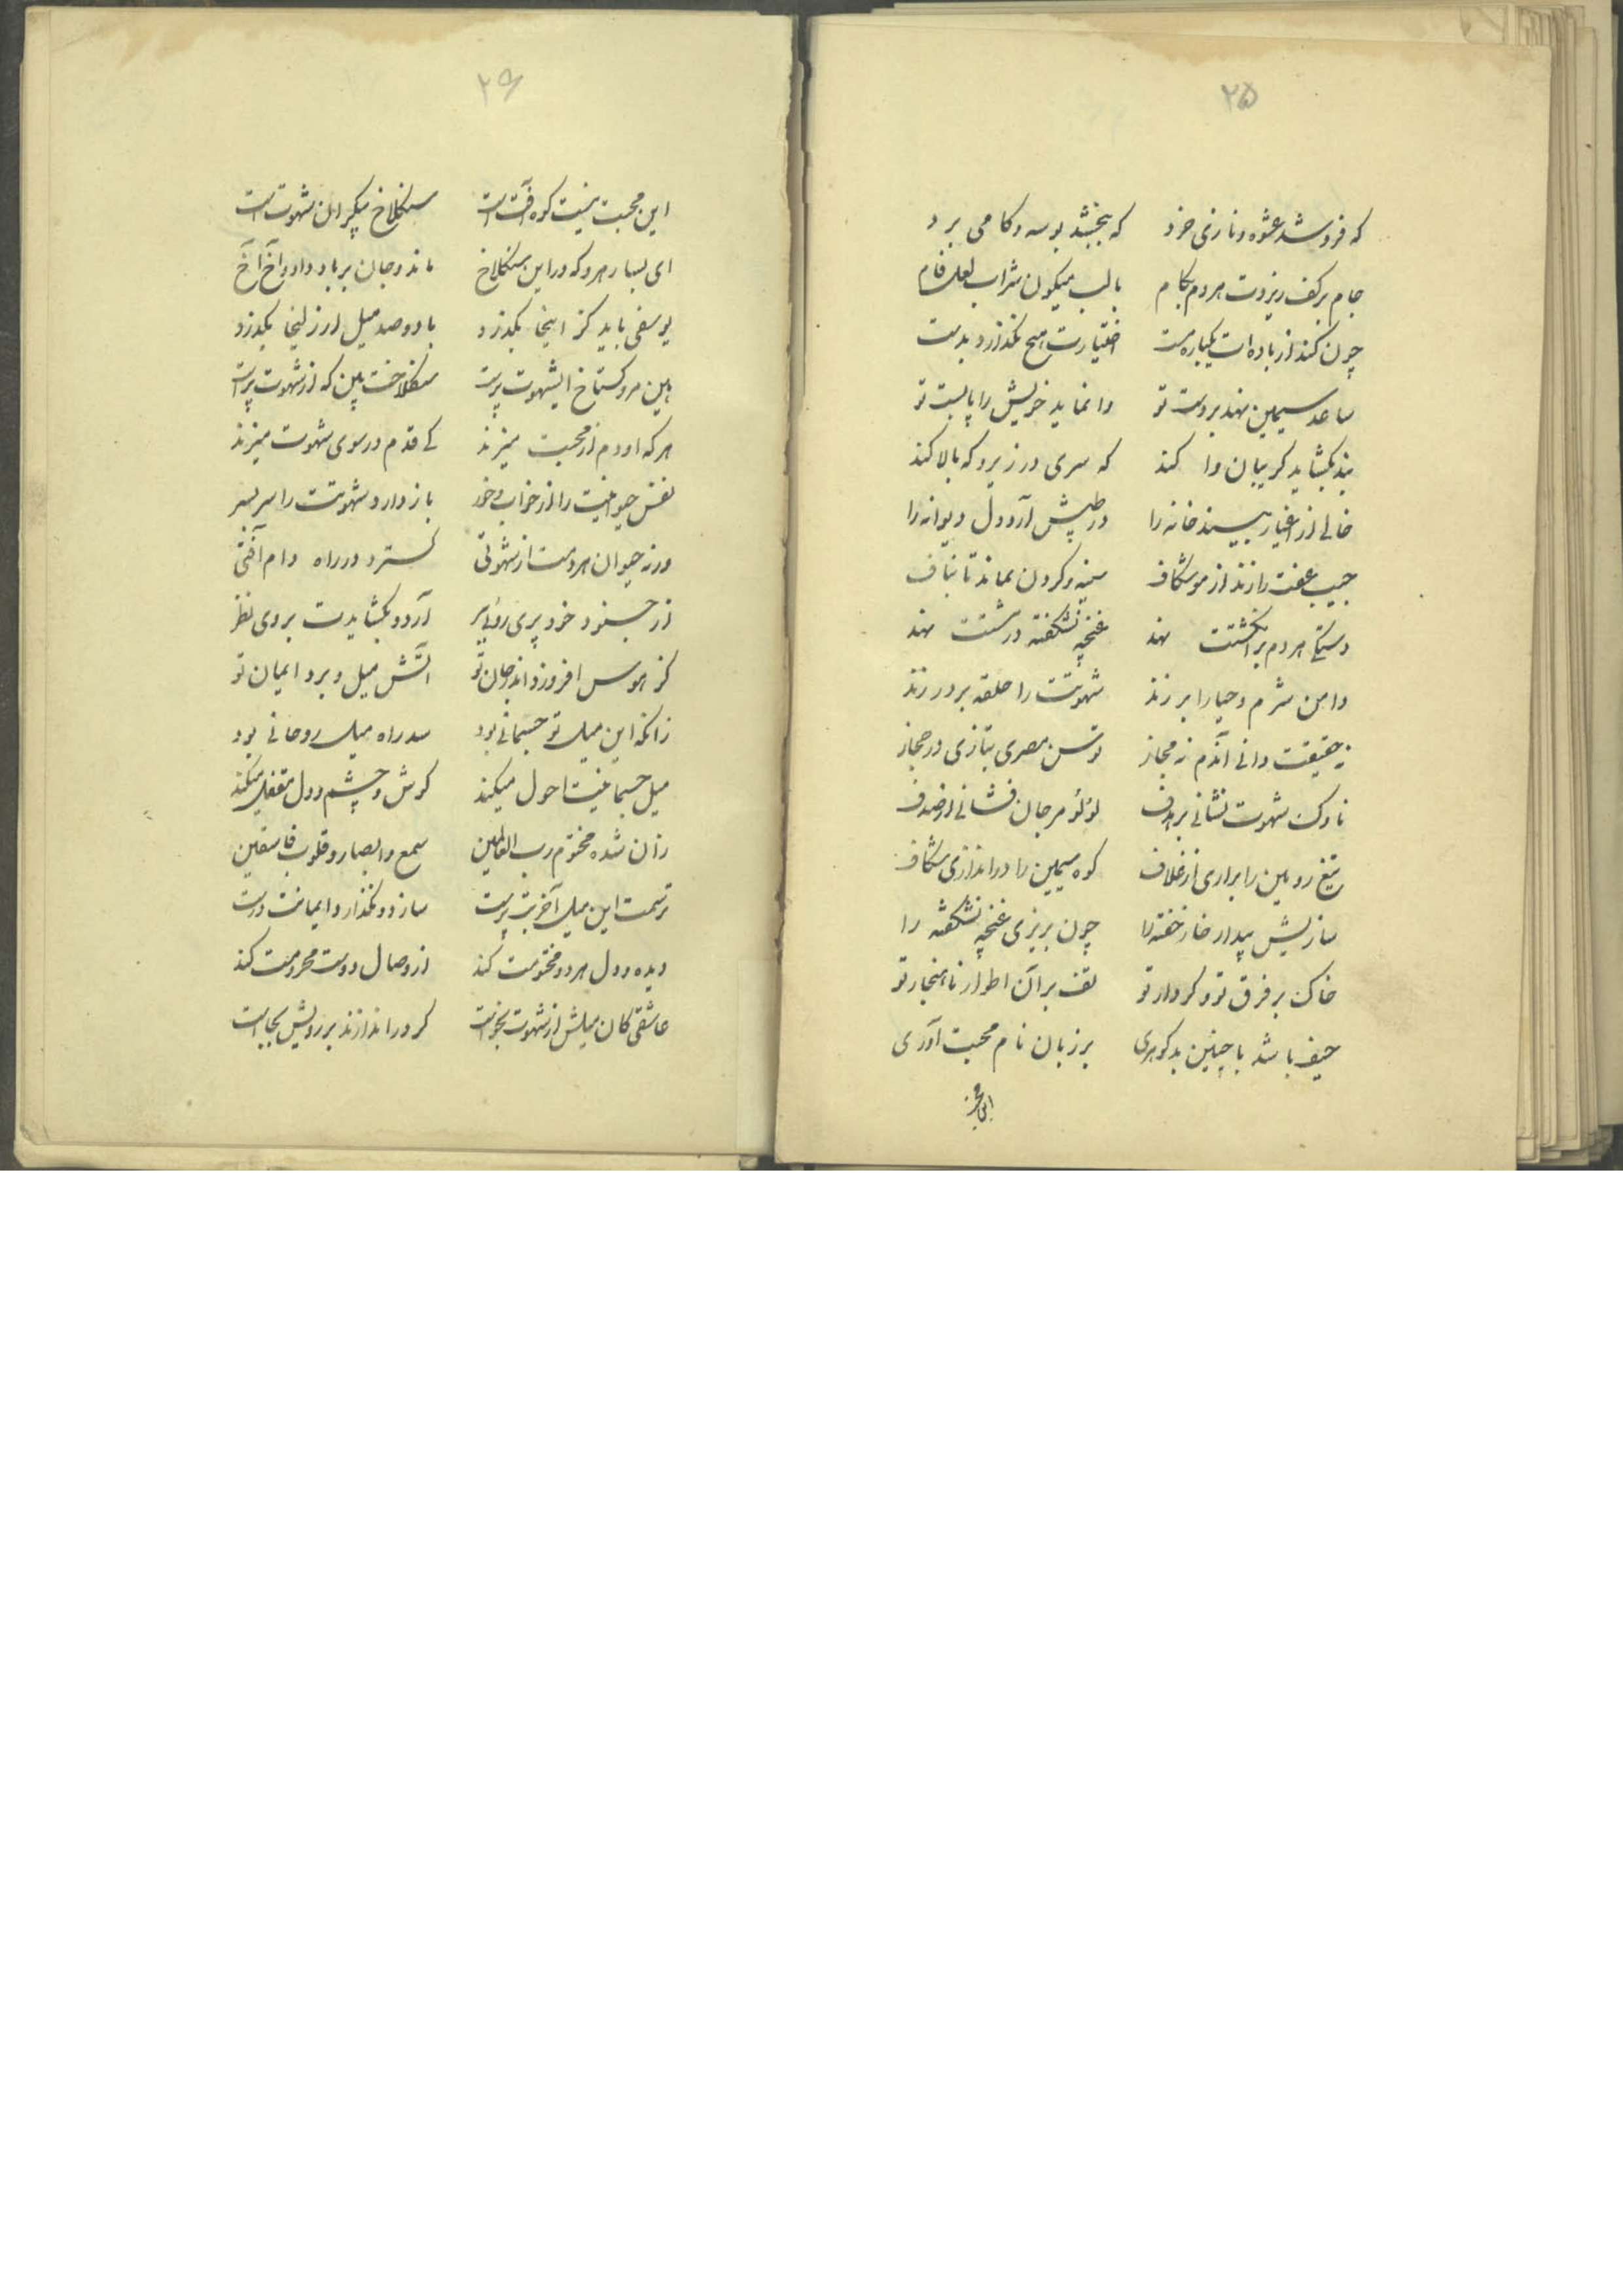 ۲۵
که فروشد عشوه و نازی خرد که ببخشد بوسه و کامی برد
جام بر کف ریزدت هردم بکام با لب میگون شراب لعل فام
چون کند از باده ات یکباره مست اختیارت هیچ نگذارد بدست
ساعد سیمین نهد بر دست تو وا نماید خویش را پابست تو
بند بگشاید گریبان وا کند گه سری در زیر و گه بالا کند
خالی از اغیار بیند خانه را در طپش آرد دل دیوانه را
جیب عفت را زند از مو شکاف سینه و گردن نماند تا بناف
دستکی هردم بر انگشتت نهد غنچه نشکفته در مشتت نهد
دامن شرم و حیا را بر زند شهوتت را حلقه بر در زند
نه حقیقت دانی آندم نه مجاز توسن مصری بتازی در حجاز
ناوک شهوت نشانی بر هدف لؤلؤ مرجان فشانی از صدف
تیغ رویین را براری از غلاف کوه سیمین را در اندازی شکاف
سازیش بیدار خار خفته را چون بریزی غنچه نشکفته را
خاک بر فرق تو و کردار تو تف بر آن اطوار ناهنجار تو
حیف باشد با چنین بد گوهری بر زبان نام محبت آوری
این محبت
۲۶
این محبت نیست کوه آفت است سنگلاخ بیکران شهوت است
ای بسا رهرو که در این سنگلاخ ماند و جان بر باد داد و آخ آخ
یوسفی باید کز اینجا بگذرد با دوصد میل از زلیخا بگذرد
هین مرو گستاخ ایشهوت پرست سنگلاخست این که از شهوت پرست
هر که او دم از محبت میزند کی قدم در سوی شهوت میزند
نفس حیوانیت را از خواب و خور باز دارد شهوتت را سر بسر
ورنه حیوان هردمت از شهوتی گسترد در راه دام آفتی
از جنود خود پری رویی ببر آرد و بگشایدت بروی نظر
کز هوس افروزد اندر جان تو آتش میل و برد ایمان تو
زانکه این میل تو جسمانی بود سد راه میل روحانی بود
میل جسمانیت احول میکند گوش و چشم و دل مقفل میکند
زان شده مختوم رب العالمین سمع و ابصار و قلوب فاسقین
ترسمت این میل آخر بت پرست سازد و نگذارد ایمانت درست
دیده و دل هردو مختومت کند از وصال دوست محرومت کند
عاشقی کان میلش از شهوت بخواست گر در اندازند بر رویش بجاست